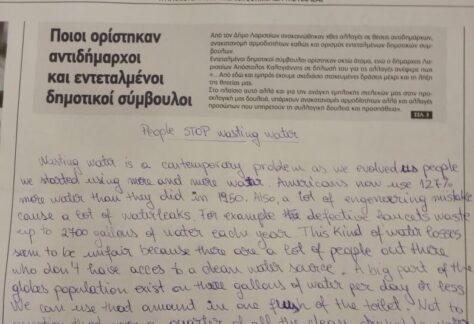 Ποιοι ορίστηκαν
αντιδήμαρχοι
και εντεταλμένοι
δημοτικοί σύμβουλοι
Από τον Δήμο Λαρισαίων ανακοινώθηκαν χθες αλλαγές σε θέσεις αντιδημάρχων,
ανακατανομή αρμοδιοτήτων καθώς και ορισμός εντεταλμένων δημοτικών συμ-
βούλων.
Εντεταλμένοι δημοτικοί σύμβουλοι ορίστηκαν οκτώ άτομα, ενώ ο δήμαρχος Λα-
ρισαίων Απόστολος Καλογιάννης σε δήλωσή του για τις αλλαγές ανέφερε πως
«... Από εδώ και εμπρός έχουμε σχεδιάσει στοχευμένες δράσεις μέχρι και τη λήξη
της θητείας μας.
Στο πλαίσιο αυτό αλλά και για την ανάγκη εμπλοκής στελεχών μας στην προ-
εκλογική μας δουλειά, υπάρχουν ανακατανομές αρμοδιοτήτων αλλά και αλλαγές
προσώπων που υπηρετούν τη συλλογική δουλειά και προσπάθεια».
ΣΕΛ.
People STOP wasting water
Wasting water is a contemporary problem as we evolved us people
we started using more and more water. Americans now use 127%
more water than they did in 1950. Also, a lot of engineering mistake
cause a lot of waterleaks. For example the defective faucets waste
up to 2700 gallons of water each year. This kind of water losses
seem to be unfair because there are a lot of people out there
who don't have acces to a clean water source. A big part of the
globes population exist on three gallons of water per day or less
We can use that amount in one flush of the toilet. Not to
a quarter of all the clean